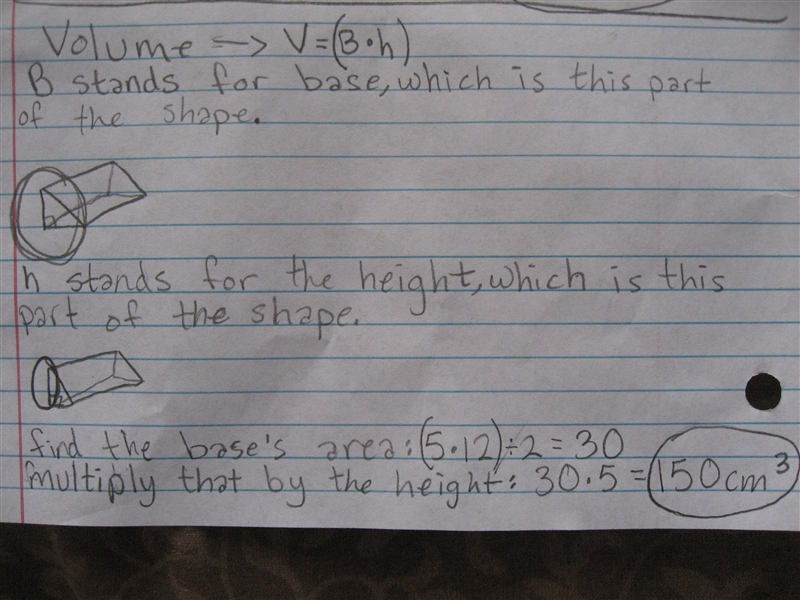 Volume -> V=(B·h)
B stands for base, which is this part
of the shape.
h stands for the height, which is this
part of the shape.
find the base's area: (5·12)÷2=30
multiply that by the height: 30·5=150cm³